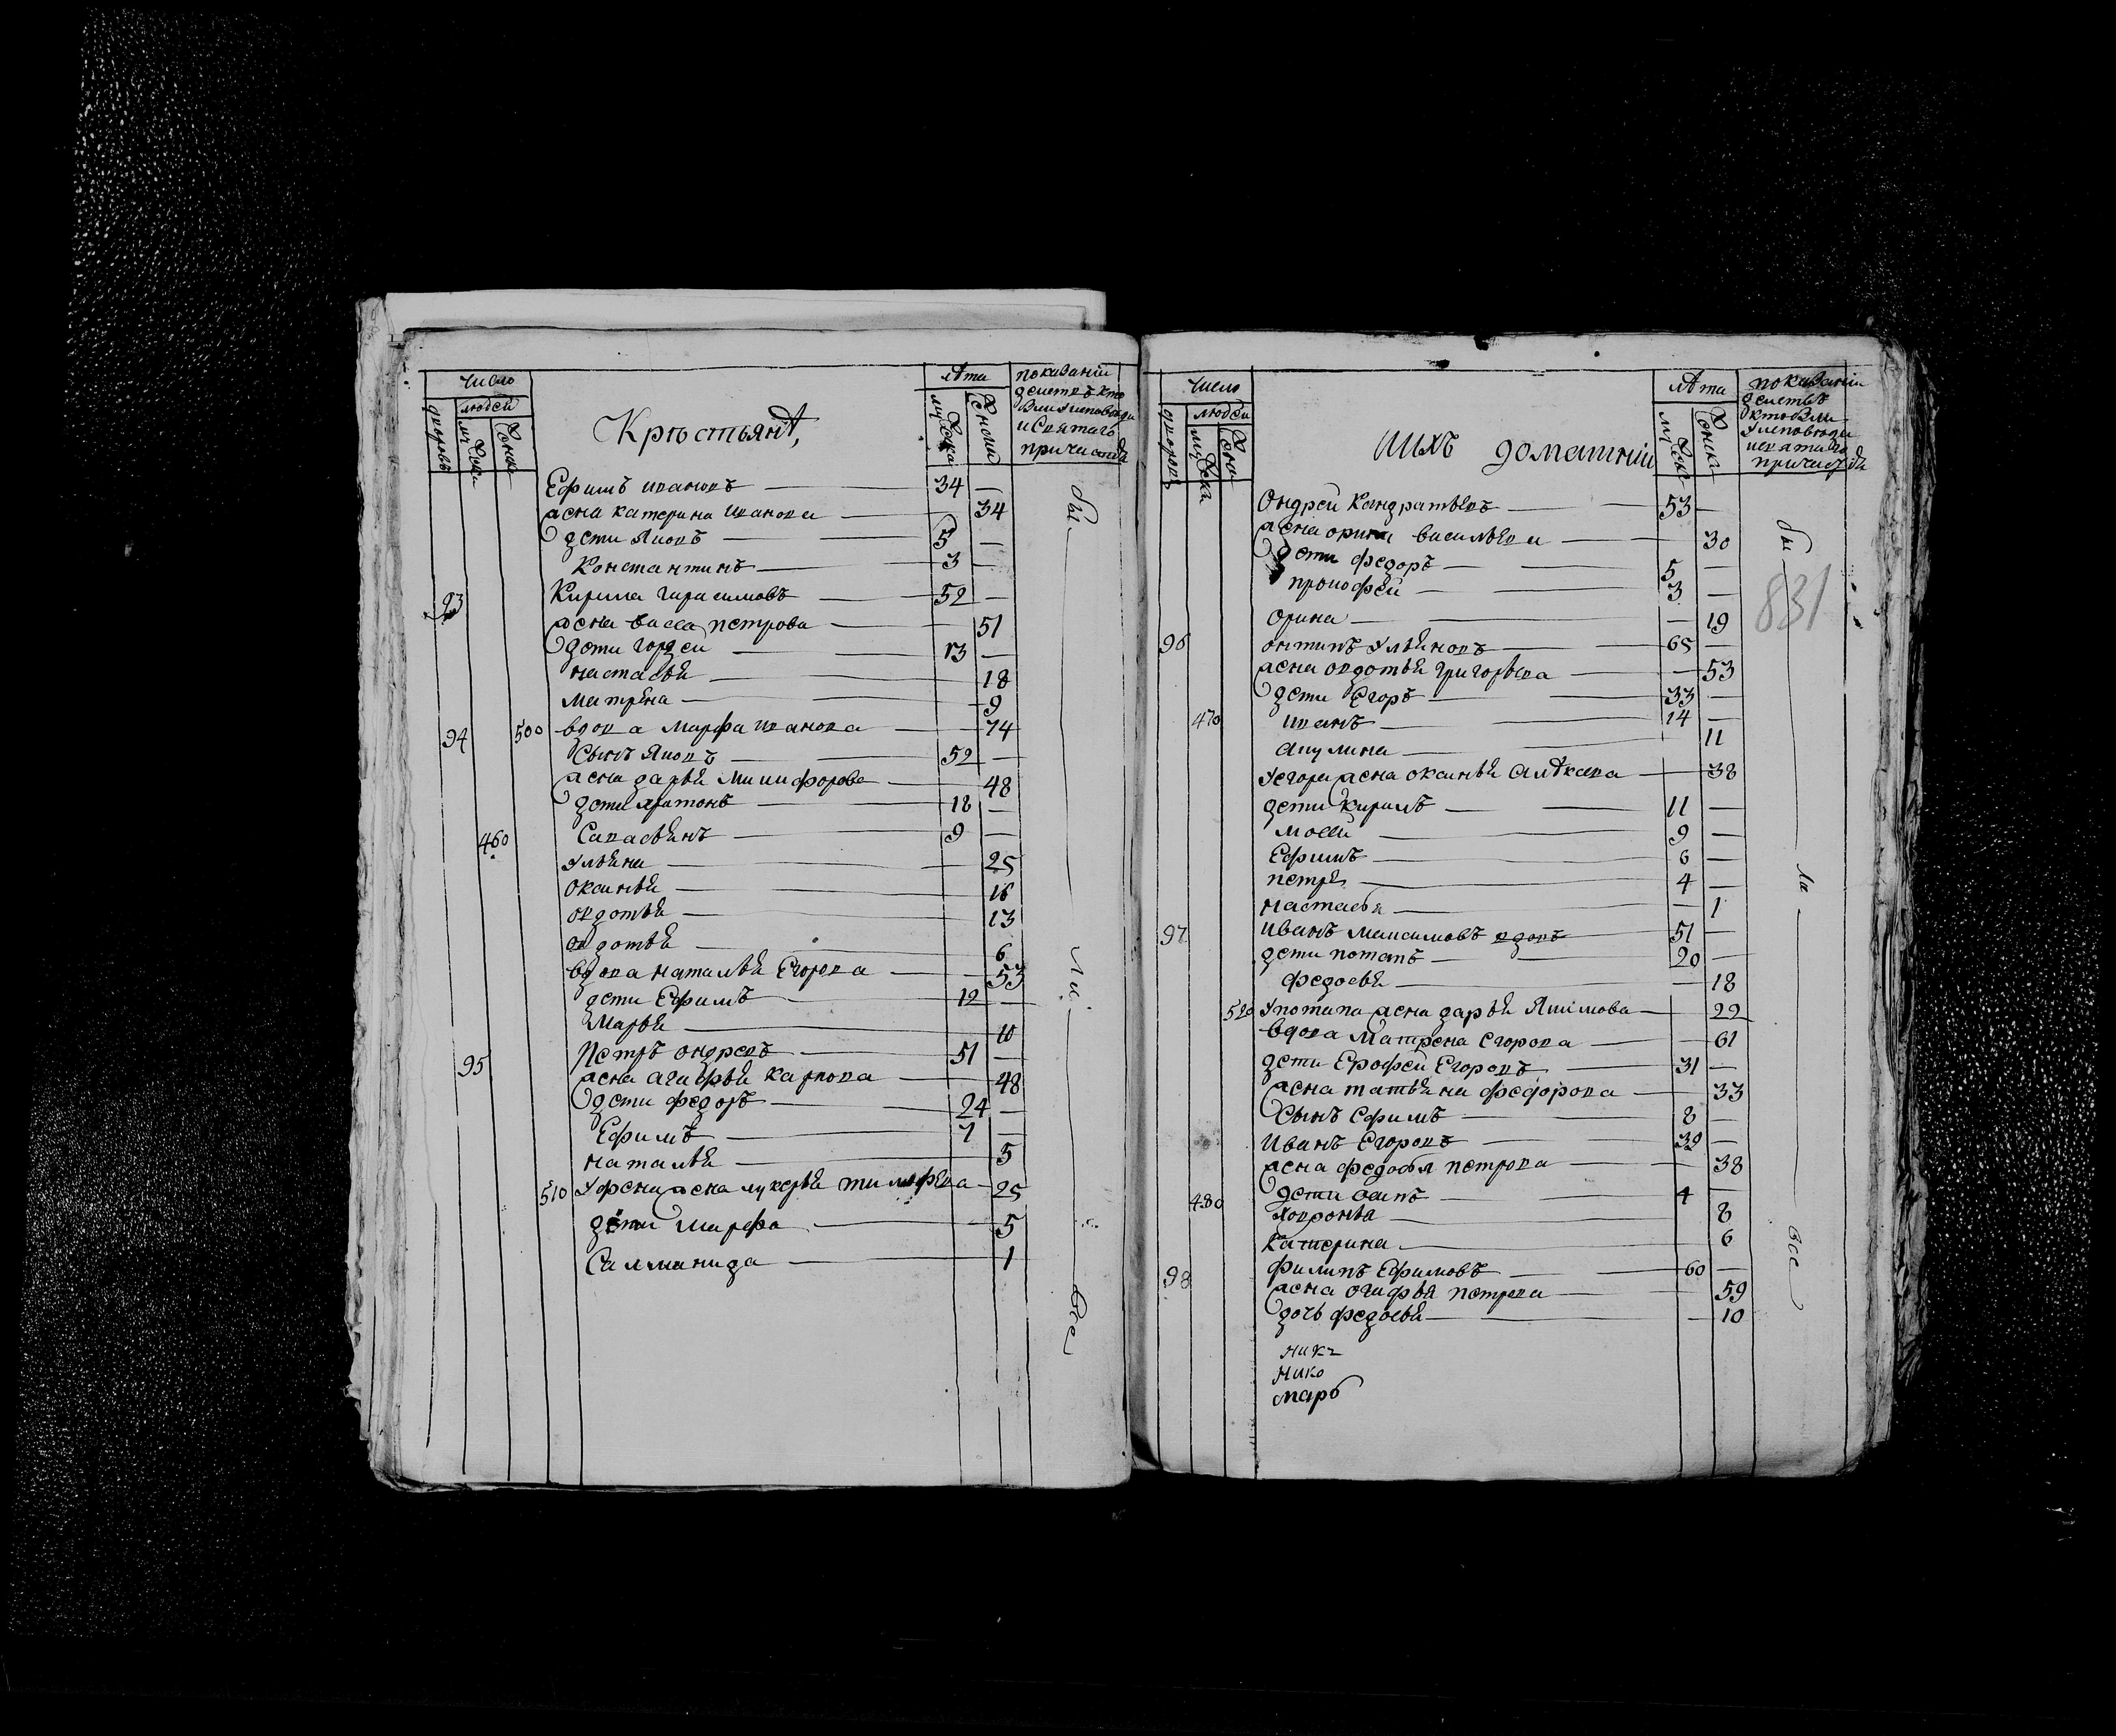 число
людей
дворовъ
муческ
женск
Крестьянѣ,
лѣта
муческа
женски
показаніи
действъ кто
были уисповеди
и святаго
причастия
Ефимъ ивановъ 34 —
жена катерина иванова 34
дети яковъ 5 —
Константинъ 3 —
93 Кирила гирасимовъ 52 —
жена васса петрова 51
дети гордеи 13 —
настасья 18
матрена 9
94 500 вдова марфа иванова 74
Сынъ яковъ 52 —
жена дарья никифорова 48
дети платонъ 18 —
460 Савастьянъ 9 —
ульяна 25
оксинья 16
овдотья 13
овдотья 6
вдова наталья Егорова 53
дети Ефимъ 12 —
Марья 10
95 Петръ ондреевъ 51 —
жена агафья карпова 48
дети федоръ 24 —
Ефимъ 7 —
наталья 5
510 жена лукерья тимофѣва 25
дети марфа 5
Саламанида 1
бы ли все
число
людей
дворовъ
муческа
женск
иихъ домашніи
лѣта
муческ
женска
показаніи
действъ
кто были
уисповеди
исвятаго
причастия
831
Ондреи Кандратьевъ 53 —
жена орина васильева 30
дети федоръ 5 —
прокофеи 3 —
орина — 19
96 онтипъ Ульяновъ 65 —
жена овдотья григорьева — 53
дети Егоръ 33 —
470 иванъ 14 —
акулина 11
уегора жена оксинья алѣксева 38
дети кирилъ 11 —
мосеи 9 —
Ефимъ 6 —
петръ 4 —
настасья — 1
97 иванъ максимовъ вдовъ 51 —
дети потапъ 20 —
федосья — 18
520 употапа жена дарья якимова 22
вдова матрена егорова — 61
дети Ерофеи Егоровъ 31 —
жена татьяна федорова 33
Сынъ ефимъ 8 —
иванъ Егоровъ 39 —
жена федосья петрова 38
480 дети осипъ 4 —
ховронья 8
катерина 6
98 филипъ Ефимовъ 60 —
жена огафья петрова 59
дочь федосья — 10
ник
нико
марѳ
бы ли все